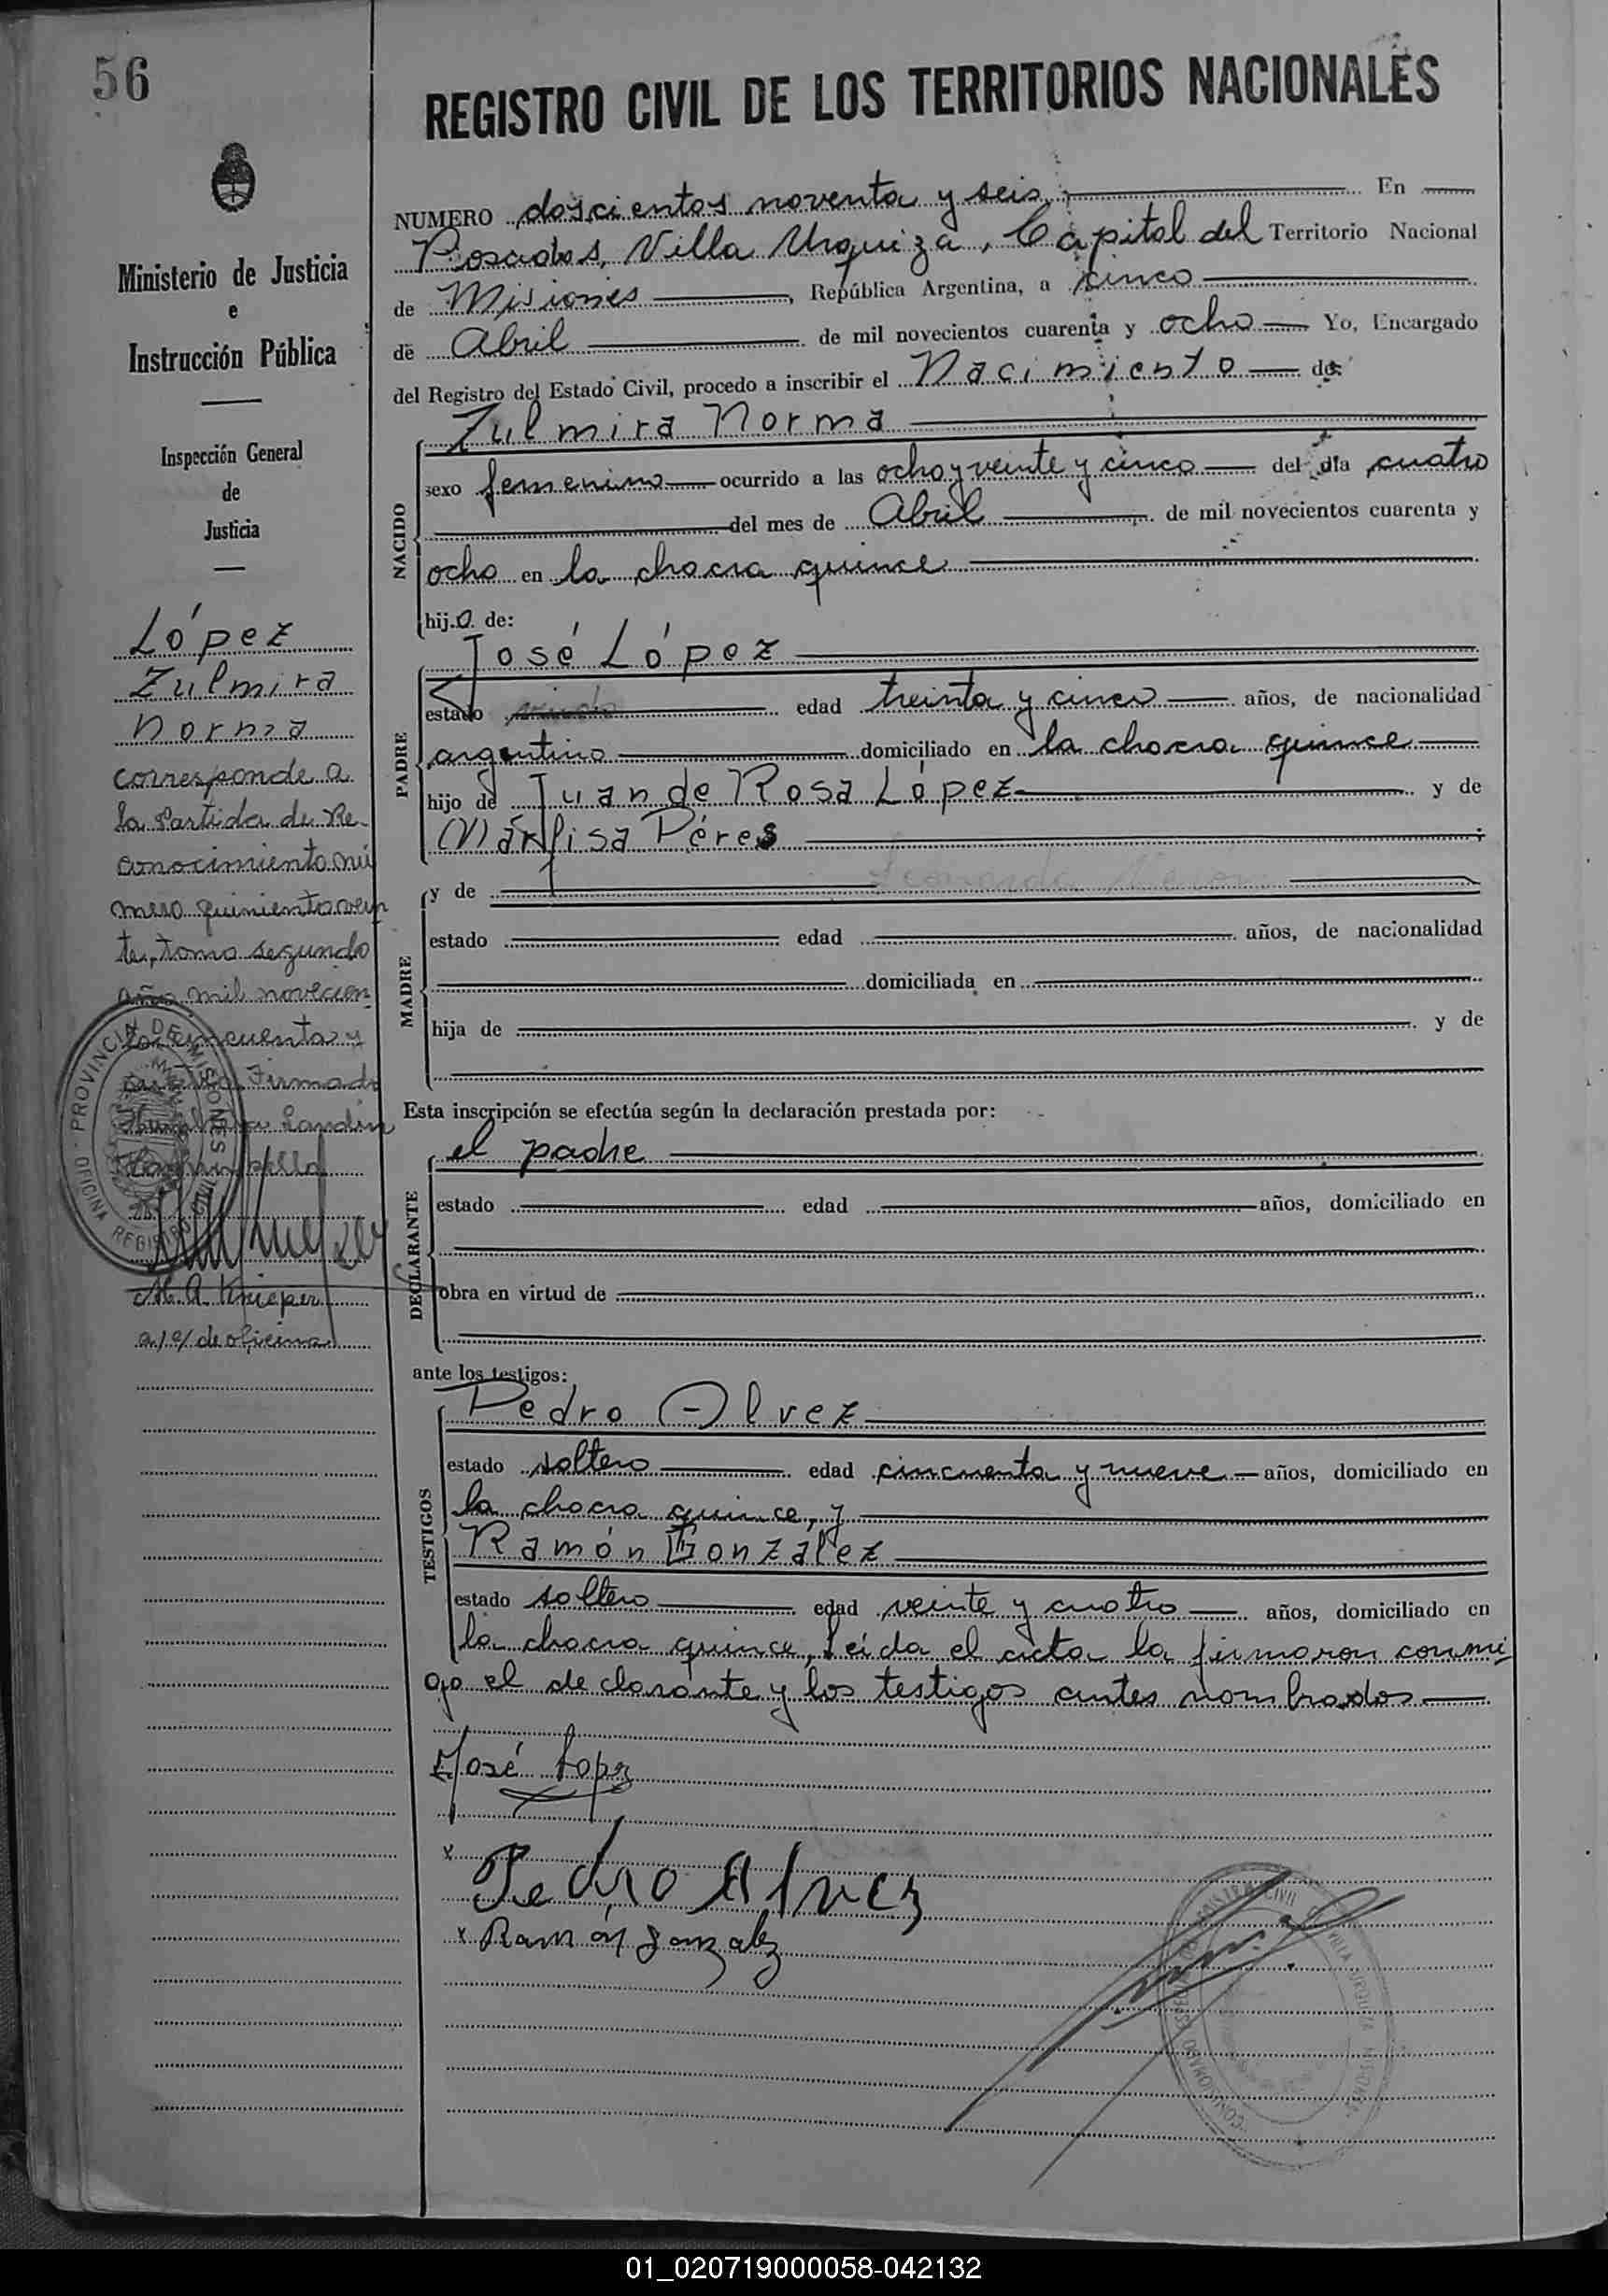 56
REGISTRO CIVIL DE LOS TERRITORIOS NACIONALES
Ministerio de Justicia
e
Instrucción Pública
Inspección General
de
Justicia
López
Zulmira
Norma
corresponde a
la Partida de Re-
conocimiento nú
mero quinientos vein
te, tomo segundo
año mil novecien
tos cincuenta y
Firmado
Landin
PROVINCIA DE MISIONES
OFICINA REGISTRO CIVIL
M. A. Knieper
a/c/ de oficina
NUMERO doscientos noventa y seis En
Posadas, Villa Urquiza, Capital del Territorio Nacional
de Misiones, República Argentina, a cinco
de Abril de mil novecientos cuarenta y ocho Yo, Encargado
del Registro del Estado Civil, procedo a inscribir el Nacimiento de:
NACIDO
Zulmira Norma
sexo femenino ocurrido a las ocho y veinte y cinco del día cuatro
del mes de Abril de mil novecientos cuarenta y
ocho en la chacra quince
hij.a de:
PADRE
José López
estado edad treinta y cinco años, de nacionalidad
argentino domiciliado en la chacra quince
hijo de Juan de Rosa López y de
Márfisa Péres ;
MADRE
y de
estado edad años, de nacionalidad
domiciliada en
hija de y de
Esta inscripción se efectúa según la declaración prestada por:
DECLARANTE
el padre
estado edad años, domiciliado en
obra en virtud de
ante los testigos:
TESTIGOS
Pedro Alvez
estado soltero edad cincuenta y nueve años, domiciliado en
la chacra quince, y
Ramón González
estado soltero edad veinte y cuatro años, domiciliado en
la chacra quince, Leída el acta la firmaron conmi
go el declarante y los testigos antes nombrados
José Lopz
x
Pedro Alvez
x Ramón Gonzalez
01_020719000058-042132